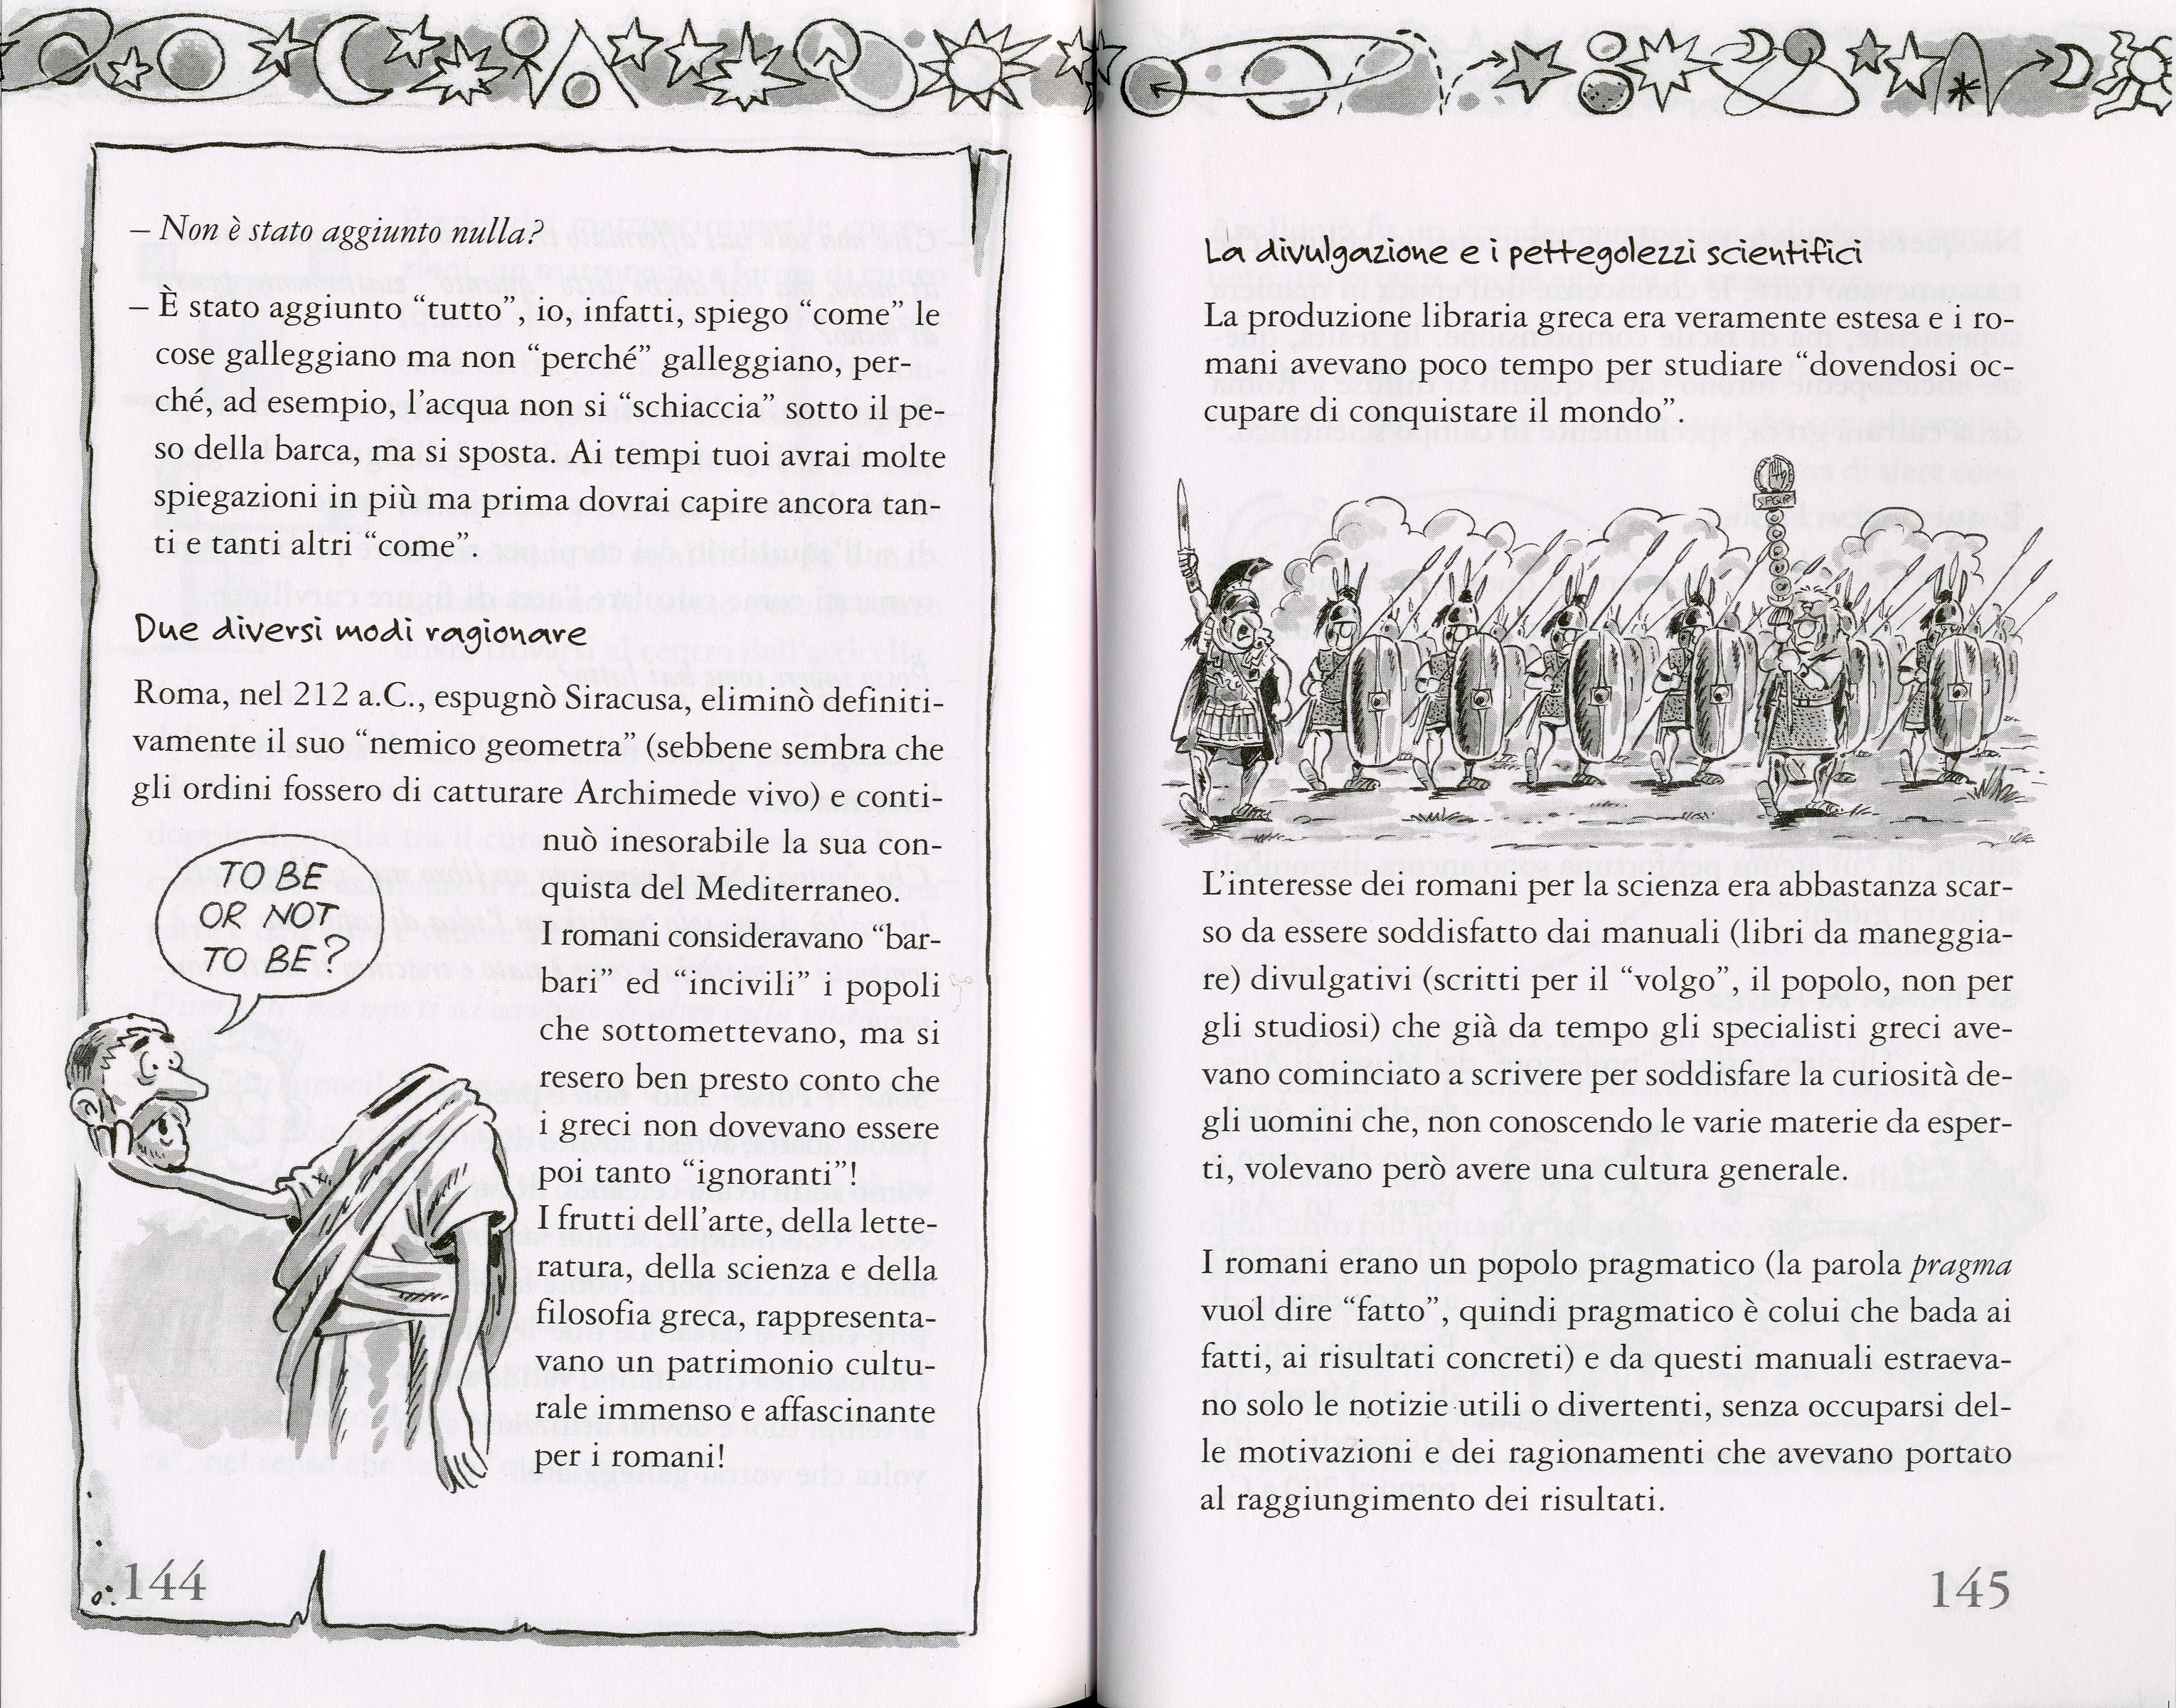 – Non è stato aggiunto nulla?
– È stato aggiunto “tutto”, io, infatti, spiego “come” le
cose galleggiano ma non “perché” galleggiano, per-
ché, ad esempio, l’acqua non si “schiaccia” sotto il pe-
so della barca, ma si sposta. Ai tempi tuoi avrai molte
spiegazioni in più ma prima dovrai capire ancora tan-
ti e tanti altri “come”.
Due diversi modi ragionare
Roma, nel 212 a.C., espugnò Siracusa, eliminò definiti-
vamente il suo “nemico geometra” (sebbene sembra che
gli ordini fossero di catturare Archimede vivo) e conti-
nuò inesorabile la sua con-
quista del Mediterraneo.
I romani consideravano “bar-
bari” ed “incivili” i popoli
che sottomettevano, ma si
resero ben presto conto che
i greci non dovevano essere
poi tanto “ignoranti”!
I frutti dell’arte, della lette-
ratura, della scienza e della
filosofia greca, rappresenta-
vano un patrimonio cultu-
rale immenso e affascinante
per i romani!
TO BE
OR NOT
TO BE?
144
La divulgazione e i pettegolezzi scientifici
La produzione libraria greca era veramente estesa e i ro-
mani avevano poco tempo per studiare “dovendosi oc-
cupare di conquistare il mondo”.
SPQR
L’interesse dei romani per la scienza era abbastanza scar-
so da essere soddisfatto dai manuali (libri da maneggia-
re) divulgativi (scritti per il “volgo”, il popolo, non per
gli studiosi) che già da tempo gli specialisti greci ave-
vano cominciato a scrivere per soddisfare la curiosità de-
gli uomini che, non conoscendo le varie materie da esper-
ti, volevano però avere una cultura generale.
I romani erano un popolo pragmatico (la parola pragma
vuol dire “fatto”, quindi pragmatico è colui che bada ai
fatti, ai risultati concreti) e da questi manuali estraeva-
no solo le notizie utili o divertenti, senza occuparsi del-
le motivazioni e dei ragionamenti che avevano portato
al raggiungimento dei risultati.
145